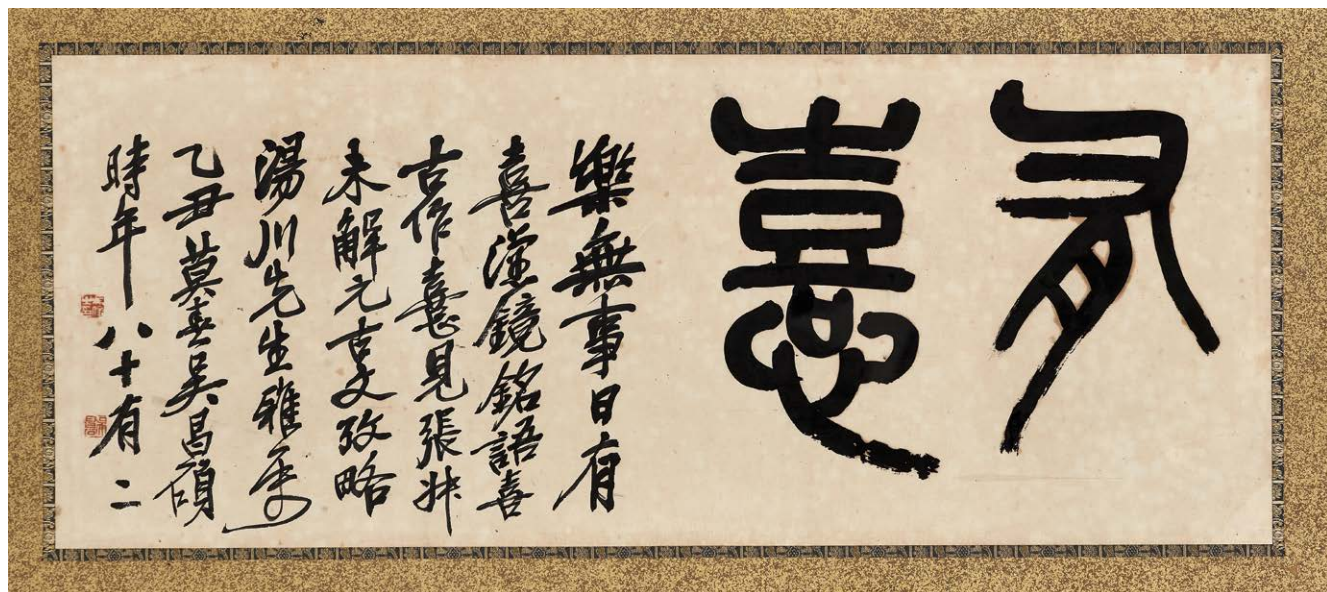 有憙
樂無事日有
喜漢鏡銘語喜
古作憙見張叔
未解元古文攷略
湯川先生雅屬
乙丑莫春吳昌碩
時年八十有二